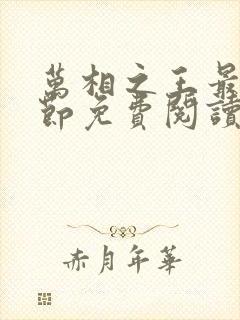 萬相之王最
節免費閱讀
赤月年華